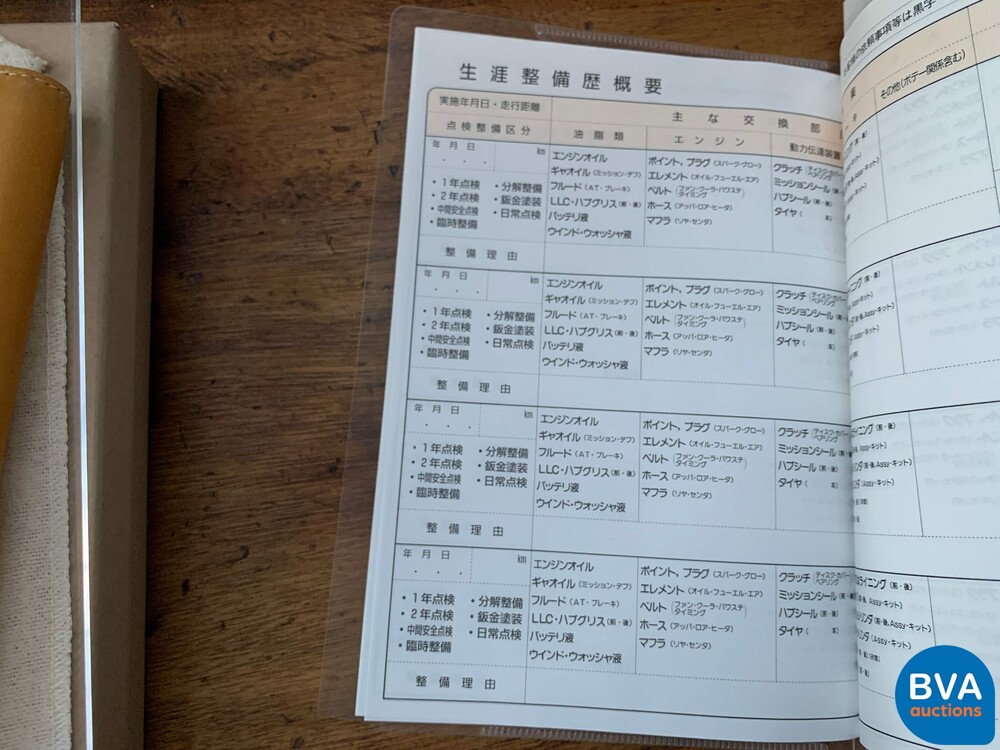 生涯整備歴概要
実施年月日・走行距離
主な交換部
点検整備区分
油脂類
エンジン
動力伝達装置
年 月 日 km
・1年点検 ・分解整備
・2年点検 ・鈑金塗装
・中間安全点検 ・日常点検
・臨時整備
整備理由
エンジンオイル
ギャオイル(ミッション・デフ)
フルード(AT・ブレーキ)
LLC・ハブグリス(前・後)
バッテリ液
ウインド・ウォッシャ液
ポイント、プラグ(スパーク・グロー)
エレメント(オイル・フューエル・エア)
ベルト(ファン・クーラ・パワステ タイミング)
ホース(アッパ・ロア・ヒータ)
マフラ(リヤ・センタ)
クラッチ(ディスク・カバー ベアリング
ミッションシール(前・後)
ハブシール(前・後)
タイヤ( 本)
年 月 日 km
・1年点検 ・分解整備
・2年点検 ・鈑金塗装
・中間安全点検 ・日常点検
・臨時整備
整備理由
エンジンオイル
ギャオイル(ミッション・デフ)
フルード(AT・ブレーキ)
LLC・ハブグリス(前・後)
バッテリ液
ウインド・ウォッシャ液
ポイント、プラグ(スパーク・グロー)
エレメント(オイル・フューエル・エア)
ベルト(ファン・クーラ・パワステ タイミング)
ホース(アッパ・ロア・ヒータ)
マフラ(リヤ・センタ)
クラッチ(ディスク・カバー ベアリング
ミッションシール(前・後)
ハブシール(前・後)
タイヤ( 本)
年 月 日 km
・1年点検 ・分解整備
・2年点検 ・鈑金塗装
・中間安全点検 ・日常点検
・臨時整備
整備理由
エンジンオイル
ギャオイル(ミッション・デフ)
フルード(AT・ブレーキ)
LLC・ハブグリス(前・後)
バッテリ液
ウインド・ウォッシャ液
ポイント、プラグ(スパーク・グロー)
エレメント(オイル・フューエル・エア)
ベルト(ファン・クーラ・パワステ タイミング)
ホース(アッパ・ロア・ヒータ)
マフラ(リヤ・センタ)
クラッチ(ディスク・カバー ベアリング
ミッションシール(前・後)
ハブシール(前・後)
タイヤ( 本)
年 月 日 km
・1年点検 ・分解整備
・2年点検 ・鈑金塗装
・中間安全点検 ・日常点検
・臨時整備
整備理由
エンジンオイル
ギャオイル(ミッション・デフ)
フルード(AT・ブレーキ)
LLC・ハブグリス(前・後)
バッテリ液
ウインド・ウォッシャ液
ポイント、プラグ(スパーク・グロー)
エレメント(オイル・フューエル・エア)
ベルト(ファン・クーラ・パワステ タイミング)
ホース(アッパ・ロア・ヒータ)
マフラ(リヤ・センタ)
クラッチ(ディスク・カバー ベアリング
ミッションシール(前・後)
ハブシール(前・後)
タイヤ( 本)
依頼事項等は黒字
その他(ボデー関係含む)
BVA
auctions